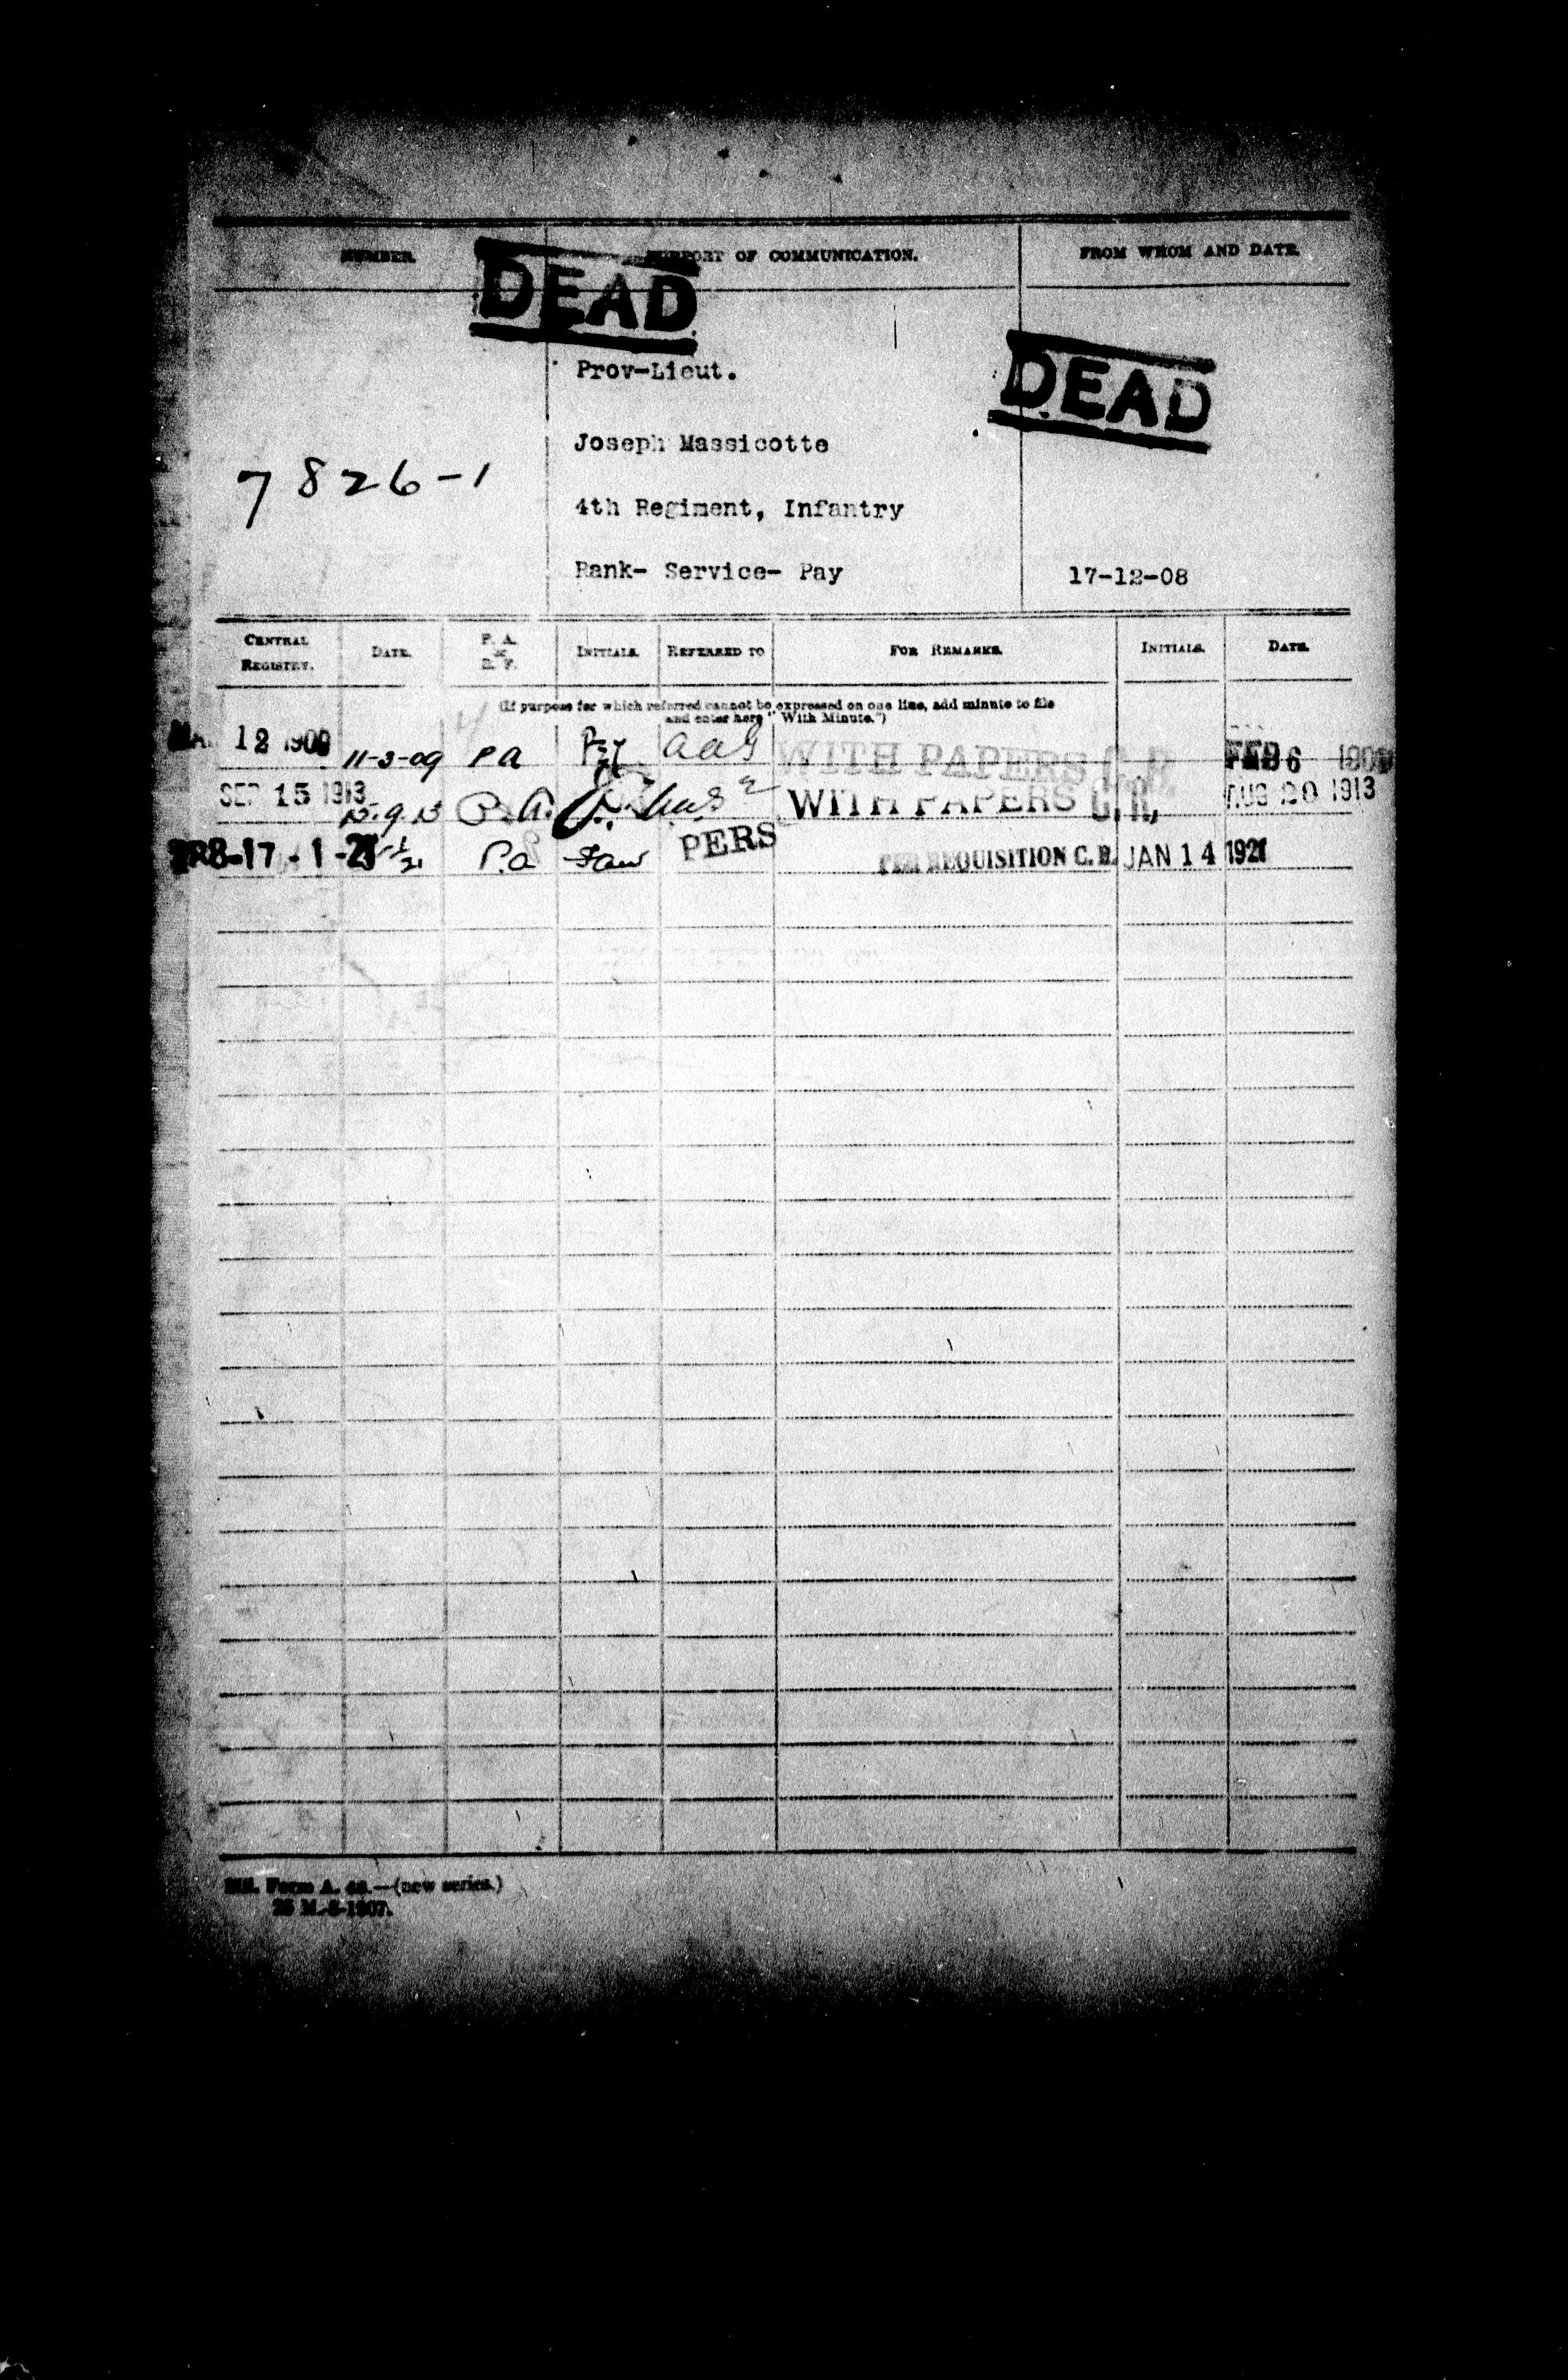 NUMBER. PURPORT OF COMMUNICATION. FROM WHOM AND DATE.
DEAD
DEAD
Prov-Lieut.
Joseph Massicotte
7826-1
4th Regiment, Infantry
Rank- Service- Pay 17-12-08
CENTRAL REGISTRY. DATE. P. A. or B. F. INITIALS. REFERRED TO FOR REMARKS. INITIALS. DATE.
(If purpose for which referred cannot be expressed on one line, add minute to file
and enter here "With Minute.")
12 1909 11-3-09 PA aag WITH PAPERS C.R. FEB 6 190
SEP 15 1913 15.9.13 P.A. WITH PAPERS C.R. AUG 20 1913
17-1-21 P.A PERS PER REQUISITION C.R. JAN 14 1921
Mil. Form A. —(new series.)
25 M.-8-1907.